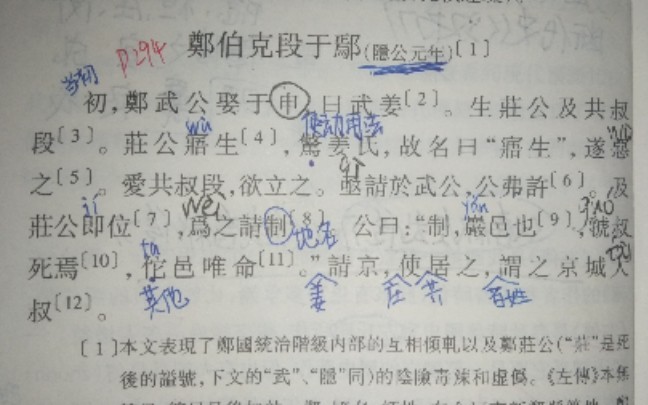 p294
鄭伯克段于鄢(隱公元年)[1]
当初
初,鄭武公娶于申,曰武姜[2]。生莊公及共叔
wù 使动用法
段[3]。莊公寤生[4],驚姜氏,故名曰“寤生”,遂惡
wù
qì
之[5]。愛共叔段,欲立之。亟請於武公,公弗許[6]。及
jí wèi yán guó
莊公即位[7],爲之請制[8]。公曰:“制,巖邑也[9],虢叔
地名
tā tài
死焉[10],佗邑唯命[11]。”請京,使居之,謂之京城大
其他 姜 庄 共 百姓
叔[12]。
[1]本文表現了鄭國統治階級内部的互相傾軋,以及鄭莊公(“莊”是死
後的謚號,下文的“武”、“隱”同)的陰險毒辣和虛僞。《左傳》本無